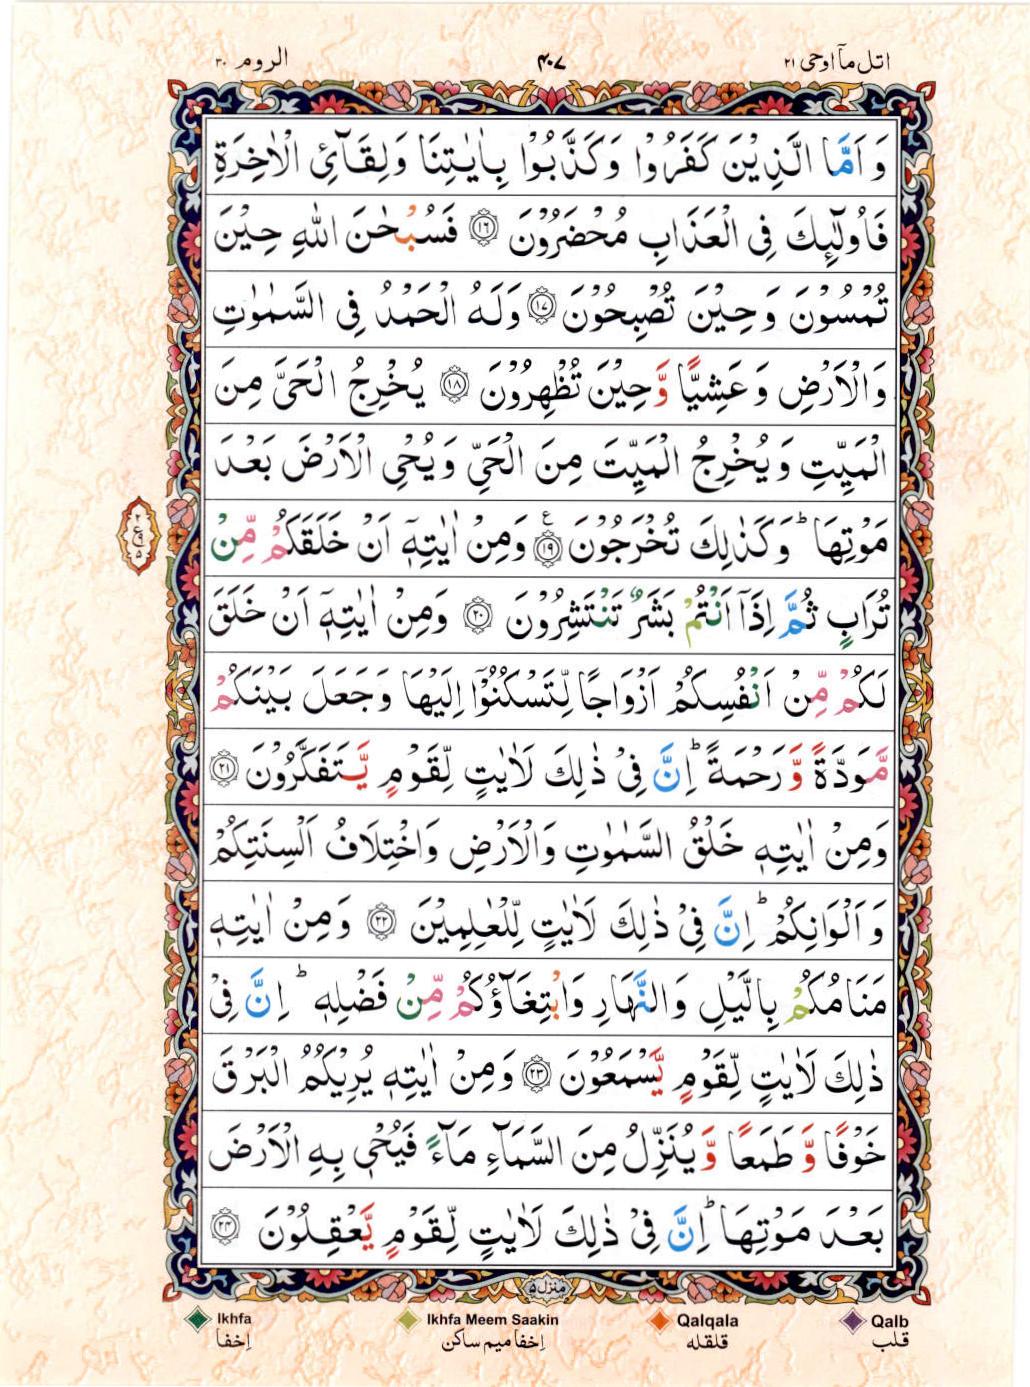 اتل مآ اوحی ۲۱
۴۰۷
الروم ۳۰
وَ اَمَّا الَّذِيْنَ كَفَرُوْا وَ كَذَّبُوْا بِاٰيٰتِنَا وَ لِقَآئِ الْاٰخِرَةِ
فَاُولٰٓئِكَ فِى الْعَذَابِ مُحْضَرُوْنَ ۝۱۶ فَسُبْحٰنَ اللّٰهِ حِيْنَ
تُمْسُوْنَ وَ حِيْنَ تُصْبِحُوْنَ ۝۱۷ وَلَهُ الْحَمْدُ فِى السَّمٰوٰتِ
وَالْاَرْضِ وَ عَشِيًّا وَّحِيْنَ تُظْهِرُوْنَ ۝۱۸ يُخْرِجُ الْحَىَّ مِنَ
الْمَيِّتِ وَ يُخْرِجُ الْمَيِّتَ مِنَ الْحَىِّ وَ يُحْىِ الْاَرْضَ بَعْدَ
مَوْتِهَا ؕ وَكَذٰلِكَ تُخْرَجُوْنَ ۝۱۹ ع وَمِنْ اٰيٰتِهٖۤ اَنْ خَلَقَكُمْ مِّنْ
تُرَابٍ ثُمَّ اِذَاۤ اَنْتُمْ بَشَرٌ تَنْتَشِرُوْنَ ۝۲۰ وَمِنْ اٰيٰتِهٖۤ اَنْ خَلَقَ
لَكُمْ مِّنْ اَنْفُسِكُمْ اَزْوَاجًا لِّتَسْكُنُوْۤا اِلَيْهَا وَ جَعَلَ بَيْنَكُمْ
مَّوَدَّةً وَّ رَحْمَةً ؕ اِنَّ فِىْ ذٰلِكَ لَاٰيٰتٍ لِّقَوْمٍ يَّتَفَكَّرُوْنَ ۝۲۱
وَمِنْ اٰيٰتِهٖ خَلْقُ السَّمٰوٰتِ وَالْاَرْضِ وَاخْتِلَافُ اَلْسِنَتِكُمْ
وَ اَلْوَانِكُمْ ؕ اِنَّ فِىْ ذٰلِكَ لَاٰيٰتٍ لِّلْعٰلِمِيْنَ ۝۲۲ وَ مِنْ اٰيٰتِهٖ
مَنَامُكُمْ بِالَّيْلِ وَالنَّهَارِ وَابْتِغَآؤُكُمْ مِّنْ فَضْلِهٖ ؕ اِنَّ فِىْ
ذٰلِكَ لَاٰيٰتٍ لِّقَوْمٍ يَّسْمَعُوْنَ ۝۲۳ وَمِنْ اٰيٰتِهٖ يُرِيْكُمُ الْبَرْقَ
خَوْفًا وَّ طَمَعًا وَّ يُنَزِّلُ مِنَ السَّمَآءِ مَآءً فَيُحْىٖ بِهِ الْاَرْضَ
بَعْدَ مَوْتِهَا ؕ اِنَّ فِىْ ذٰلِكَ لَاٰيٰتٍ لِّقَوْمٍ يَّعْقِلُوْنَ ۝۲۴
۲
ع
۵
منزل ۵
Ikhfa
اِخفا
Ikhfa Meem Saakin
اِخفا ميم ساكن
Qalqala
قلقله
Qalb
قلب